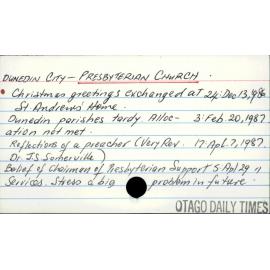 DUNEDIN CITY - PRESBYTERIAN CHURCH.
Christmas greetings exchanged at 24: Dec 13, 
St. Andrews Home.
Dunedin parishes tardy Alloc- 3: Feb 20, 1987
ation not met.
Reflections of a preacher (Very Rev. 17: Apl. 7, 1987
Dr. J.S. Somerville)
Belief of Chairman of Presbyterian Support 5 Apl 29 "
Services. Stress a big problem in future.
OTAGO DAILY TIMES